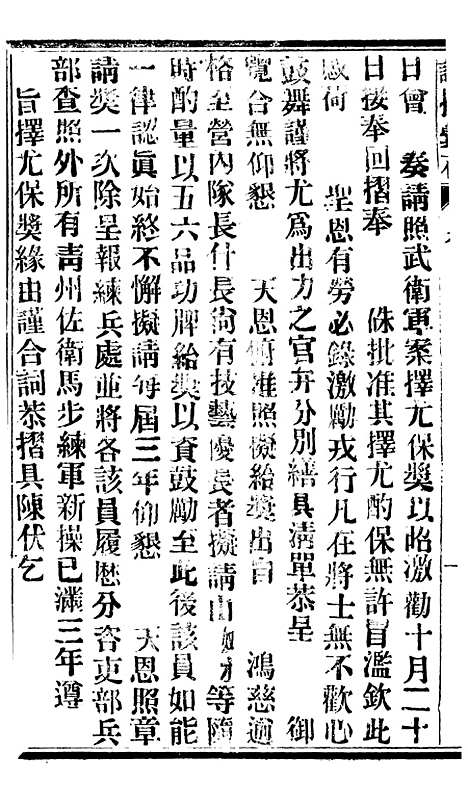 日會奏請照武衛軍案擇尤保獎以昭激勸十月二十
日接奉回摺奉硃批准其擇尤酌保無許冒濫欽此
感荷聖恩有勞必錄激勵戎行凡在將士無不歡心
鼓舞謹將尤為出力之官弁分別繕具清單恭呈御
覽合無仰懇天恩俯准照擬給獎出自鴻慈逾
格至營內隊長什長尚有技藝優長者擬請由等隨
時酌量以五六品功牌給獎以資鼓勵至此後該員如能
一律認眞始終不懈擬請每屆三年仰懇天恩照章
請獎一次除呈報練兵處並將各該員履歷分咨吏部兵
部查照外所有靑州佐衛馬步練軍新操已滿三年遵
旨擇尤保獎緣由謹合詞恭摺具陳伏乞